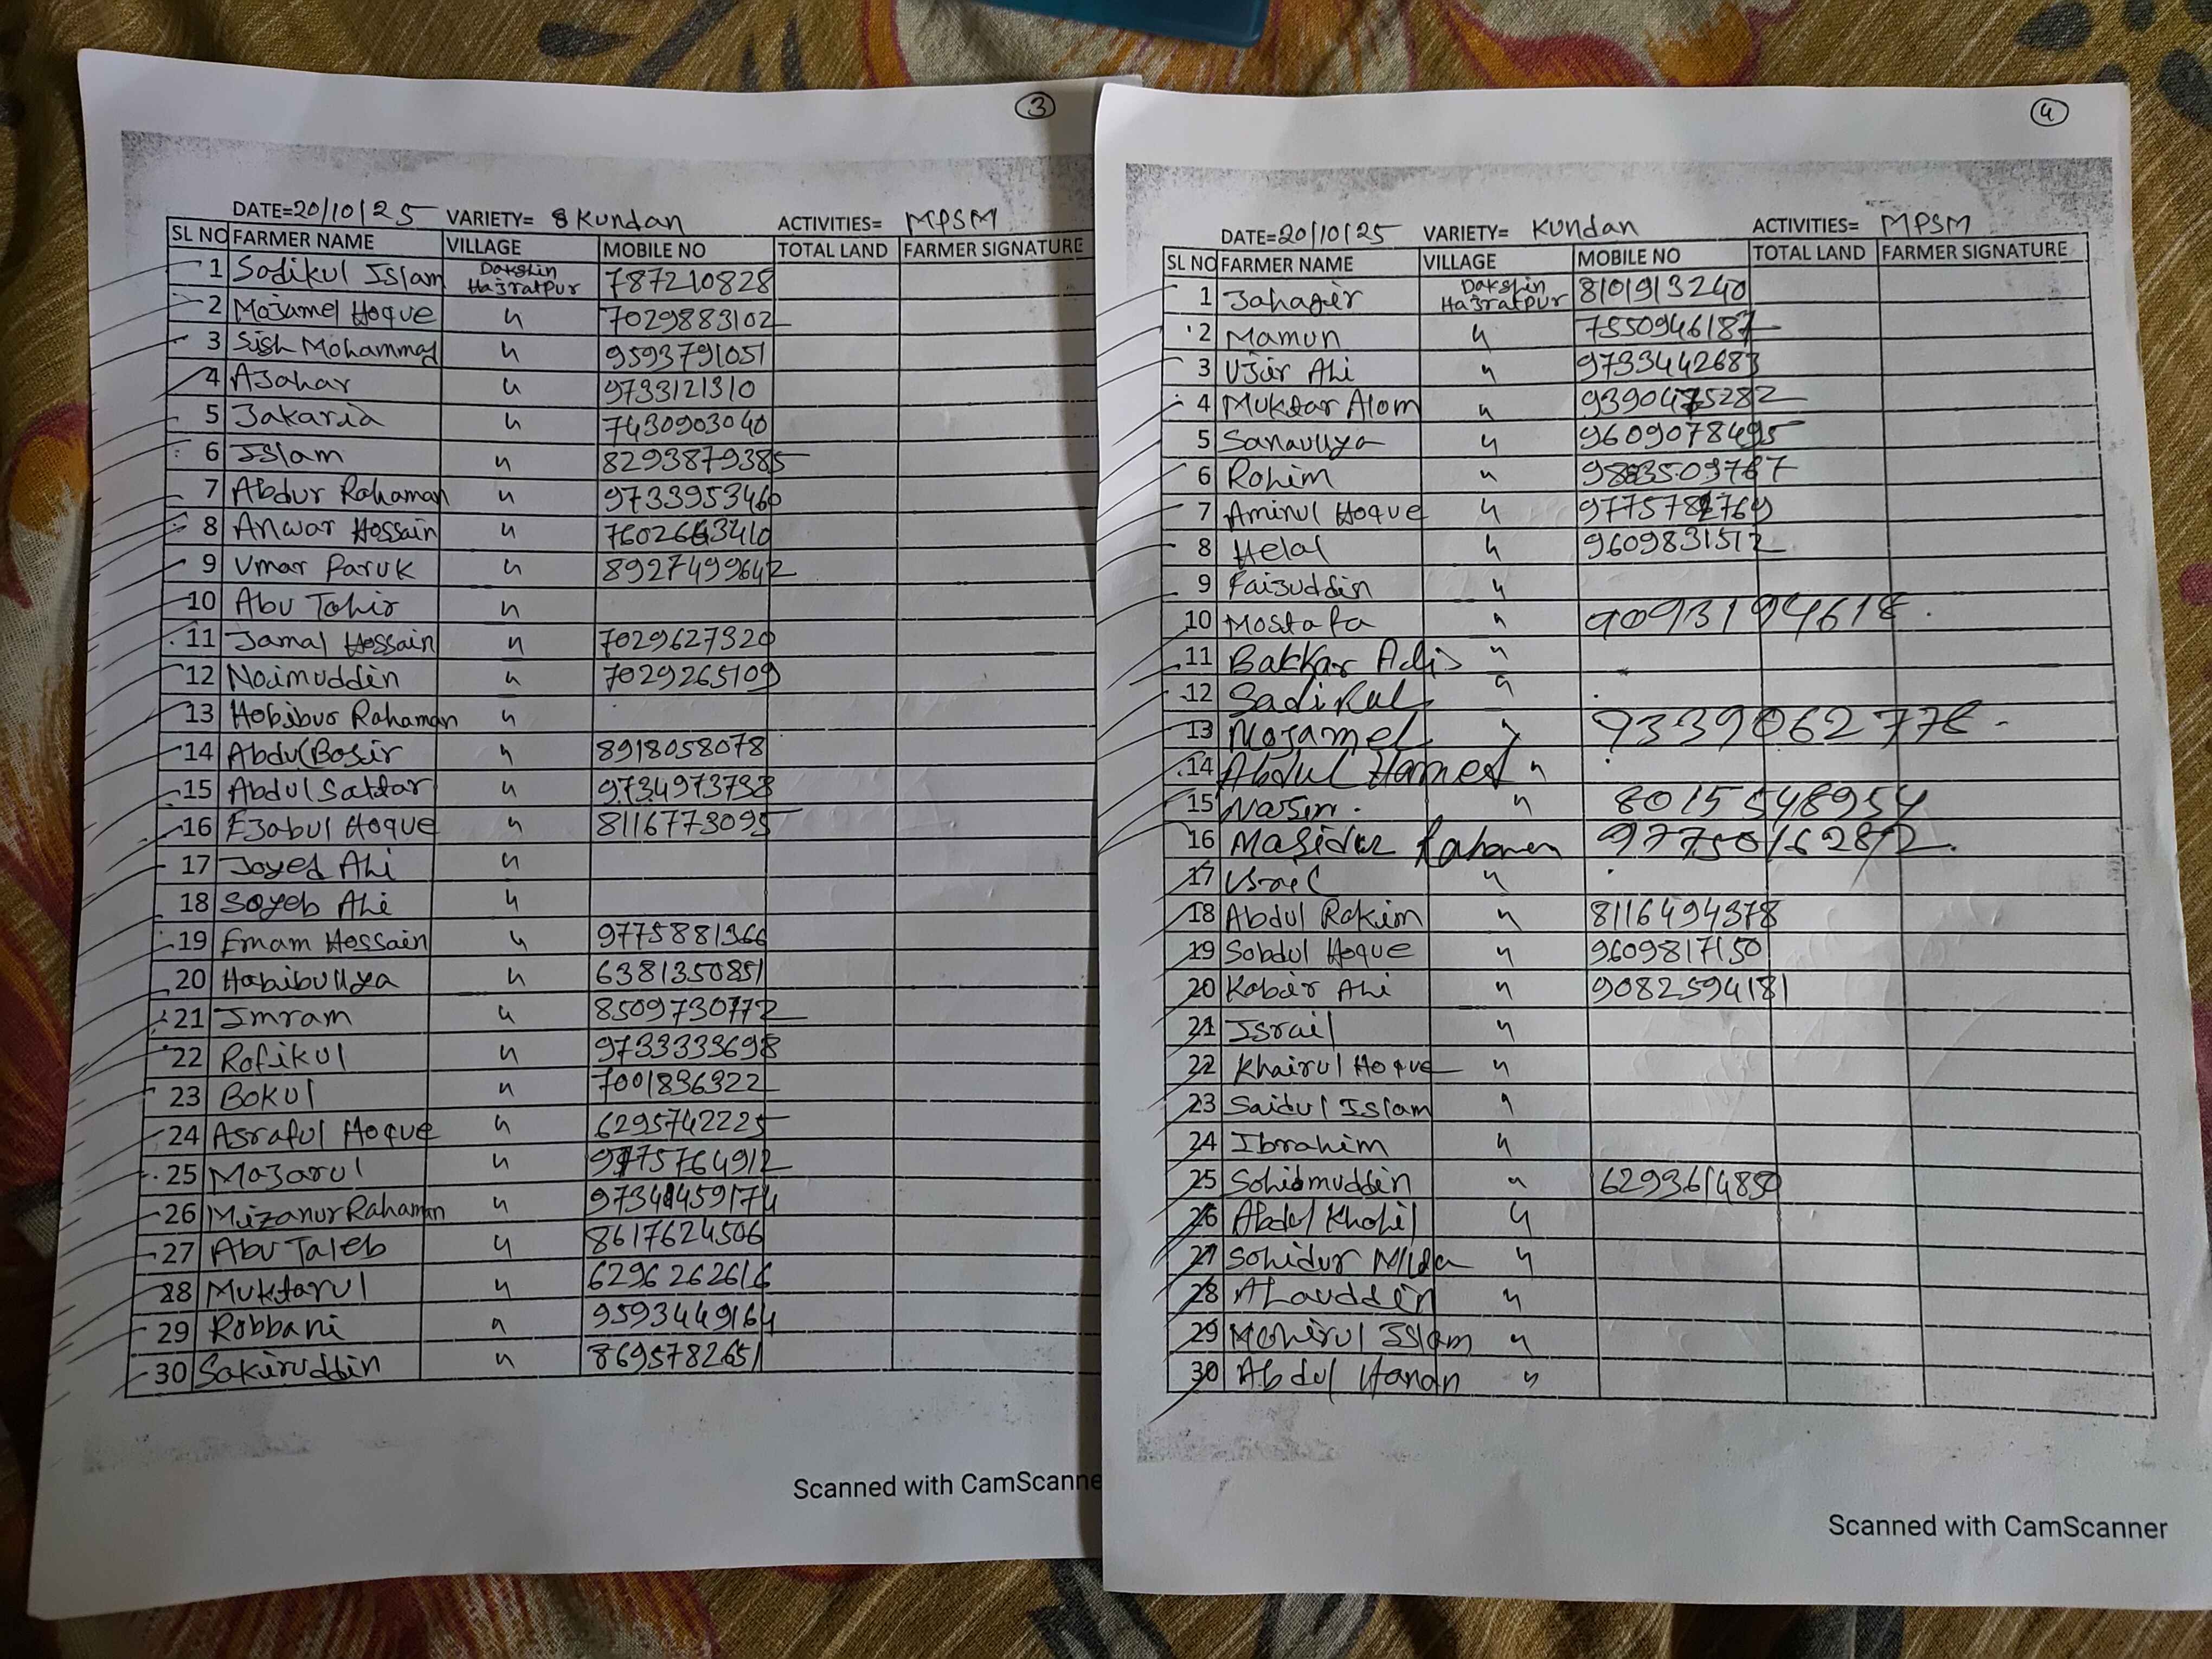 3
DATE=20/10/25 VARIETY= Kundan ACTIVITIES= MPSM
SL NO FARMER NAME VILLAGE MOBILE NO TOTAL LAND FARMER SIGNATURE
1 Sadikul Islam Dakshin Hazratpur 787210828
2 Mozamel Hoque " 7029883102
3 Sish Mohammad " 9593791051
4 Azahar " 9733121310
5 Jakaria " 7430903040
6 Islam " 8293879385
7 Abdur Rahaman " 9733953460
8 Anwar Hossain " 7602643410
9 Umar Faruk " 8927499642
10 Abu Tahir "
11 Jamal Hossain " 7029627320
12 Naimuddin " 7029265109
13 Habibur Rahaman "
14 Abdul Basir " 8918058078
15 Abdul Sattar " 9734973738
16 Ezabul Hoque " 8116773095
17 Joyed Ali "
18 Soyeb Ali "
19 Emam Hossain " 9775881366
20 Habibullya " 6381350851
21 Imram " 8509730772
22 Rofikul " 9733333698
23 Bokul " 7001836322
24 Asraful Hoque " 6295742225
25 Mozarul " 9775764912
26 Mizanur Rahaman " 9734459174
27 Abu Taleb " 8617624506
28 Muktarul " 6296262616
29 Robbani " 9593449164
30 Sakiruddin " 8695782651
Scanned with CamScanne
4
DATE=20/10/25 VARIETY= Kundan ACTIVITIES= MPSM
SL NO FARMER NAME VILLAGE MOBILE NO TOTAL LAND FARMER SIGNATURE
1 Jahagir Dakshin Hazratpur 8101913240
2 Mamun " 7550946187
3 Uzir Ali " 9733442683
4 Muktar Alom " 9390475282
5 Sanaullya " 9609078495
6 Rohim "
7 Aminul Hoque "
8 Helal " 9609831512
9 Faizuddin "
10 Mostafa "
11 Bakkar "
12 Sadikul "
13 Mozamel " 9339062778
14 Abdul Hamed "
15 " 8015548954
16 Masidur Rahaman
17 "
18 Abdul Rakim " 8116494378
19 Sobdul Hoque " 9609817150
20 Kabir Ali " 9082594181
21 Israil "
22 Khairul Hoque "
23 Saidul Islam "
24 Ibrahim "
25 Sohidmuddin " 6293614850
26 Abdul Khalil "
27 Sohidur "
28 Alauddin "
29 Monirul Islam "
30 Abdul Hanan "
Scanned with CamScanner